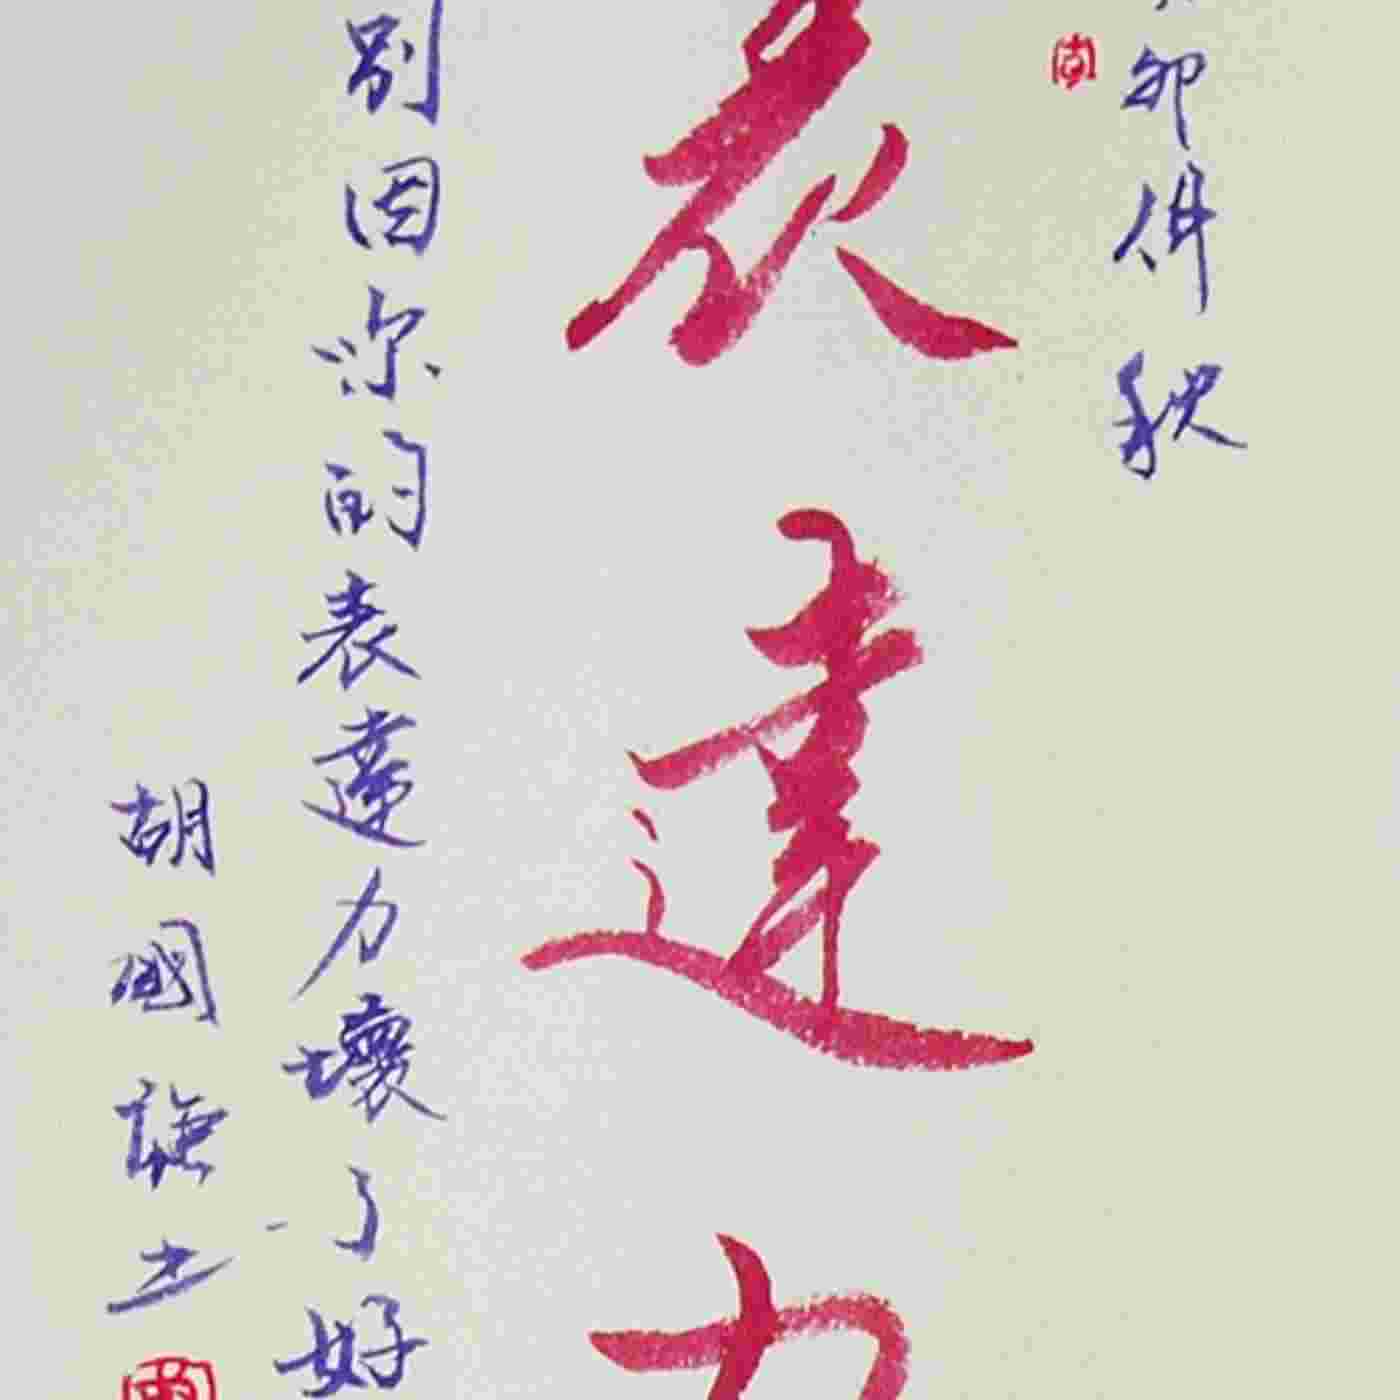 卯仲秋
表達力
別因你的表達力壞了好
胡國謹書